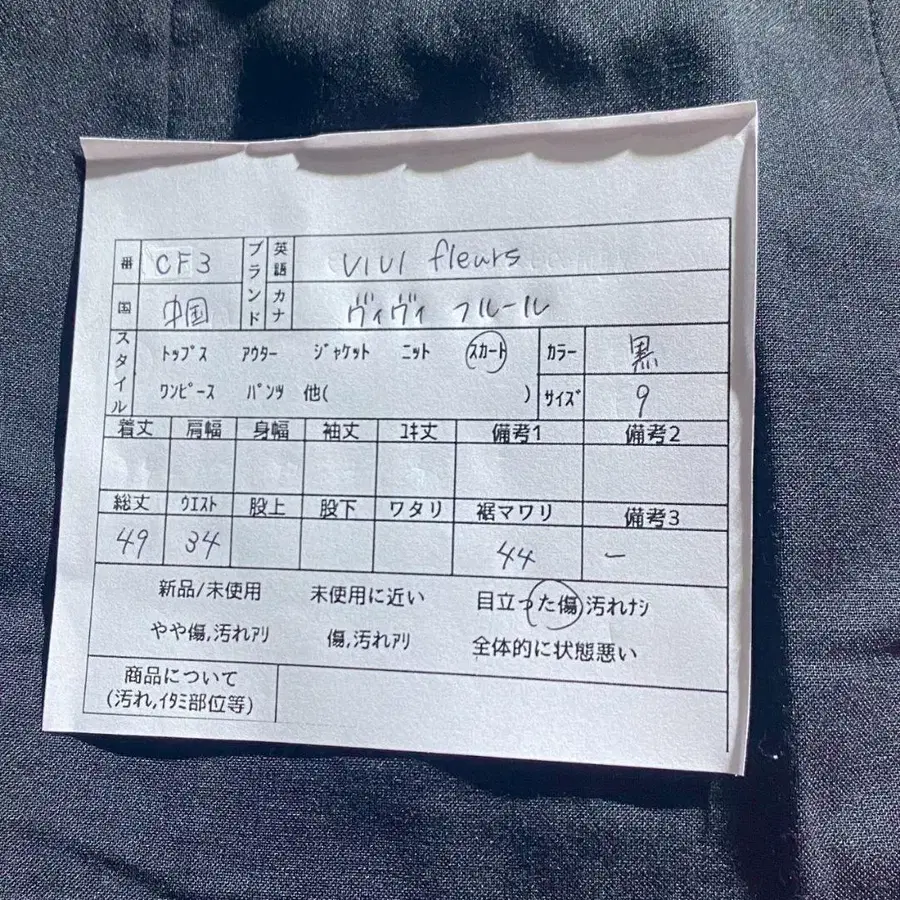 番 CF3 ブランド 英語 ViVi fleurs
国 中国 カナ ヴィヴィ フルール
スタイル トップス アウター ジャケット ニット スカート カラー 黒
ワンピース パンツ 他( ) サイズ 9
着丈 肩幅 身幅 袖丈 ユキ丈 備考1 備考2
総丈 ウエスト 股上 股下 ワタリ 裾マワリ 備考3
49 34 44 ー
新品/未使用 未使用に近い 目立った傷,汚れナシ
やや傷,汚れアリ 傷,汚れアリ 全体的に状態悪い
商品について
(汚れ,イタミ部位等)